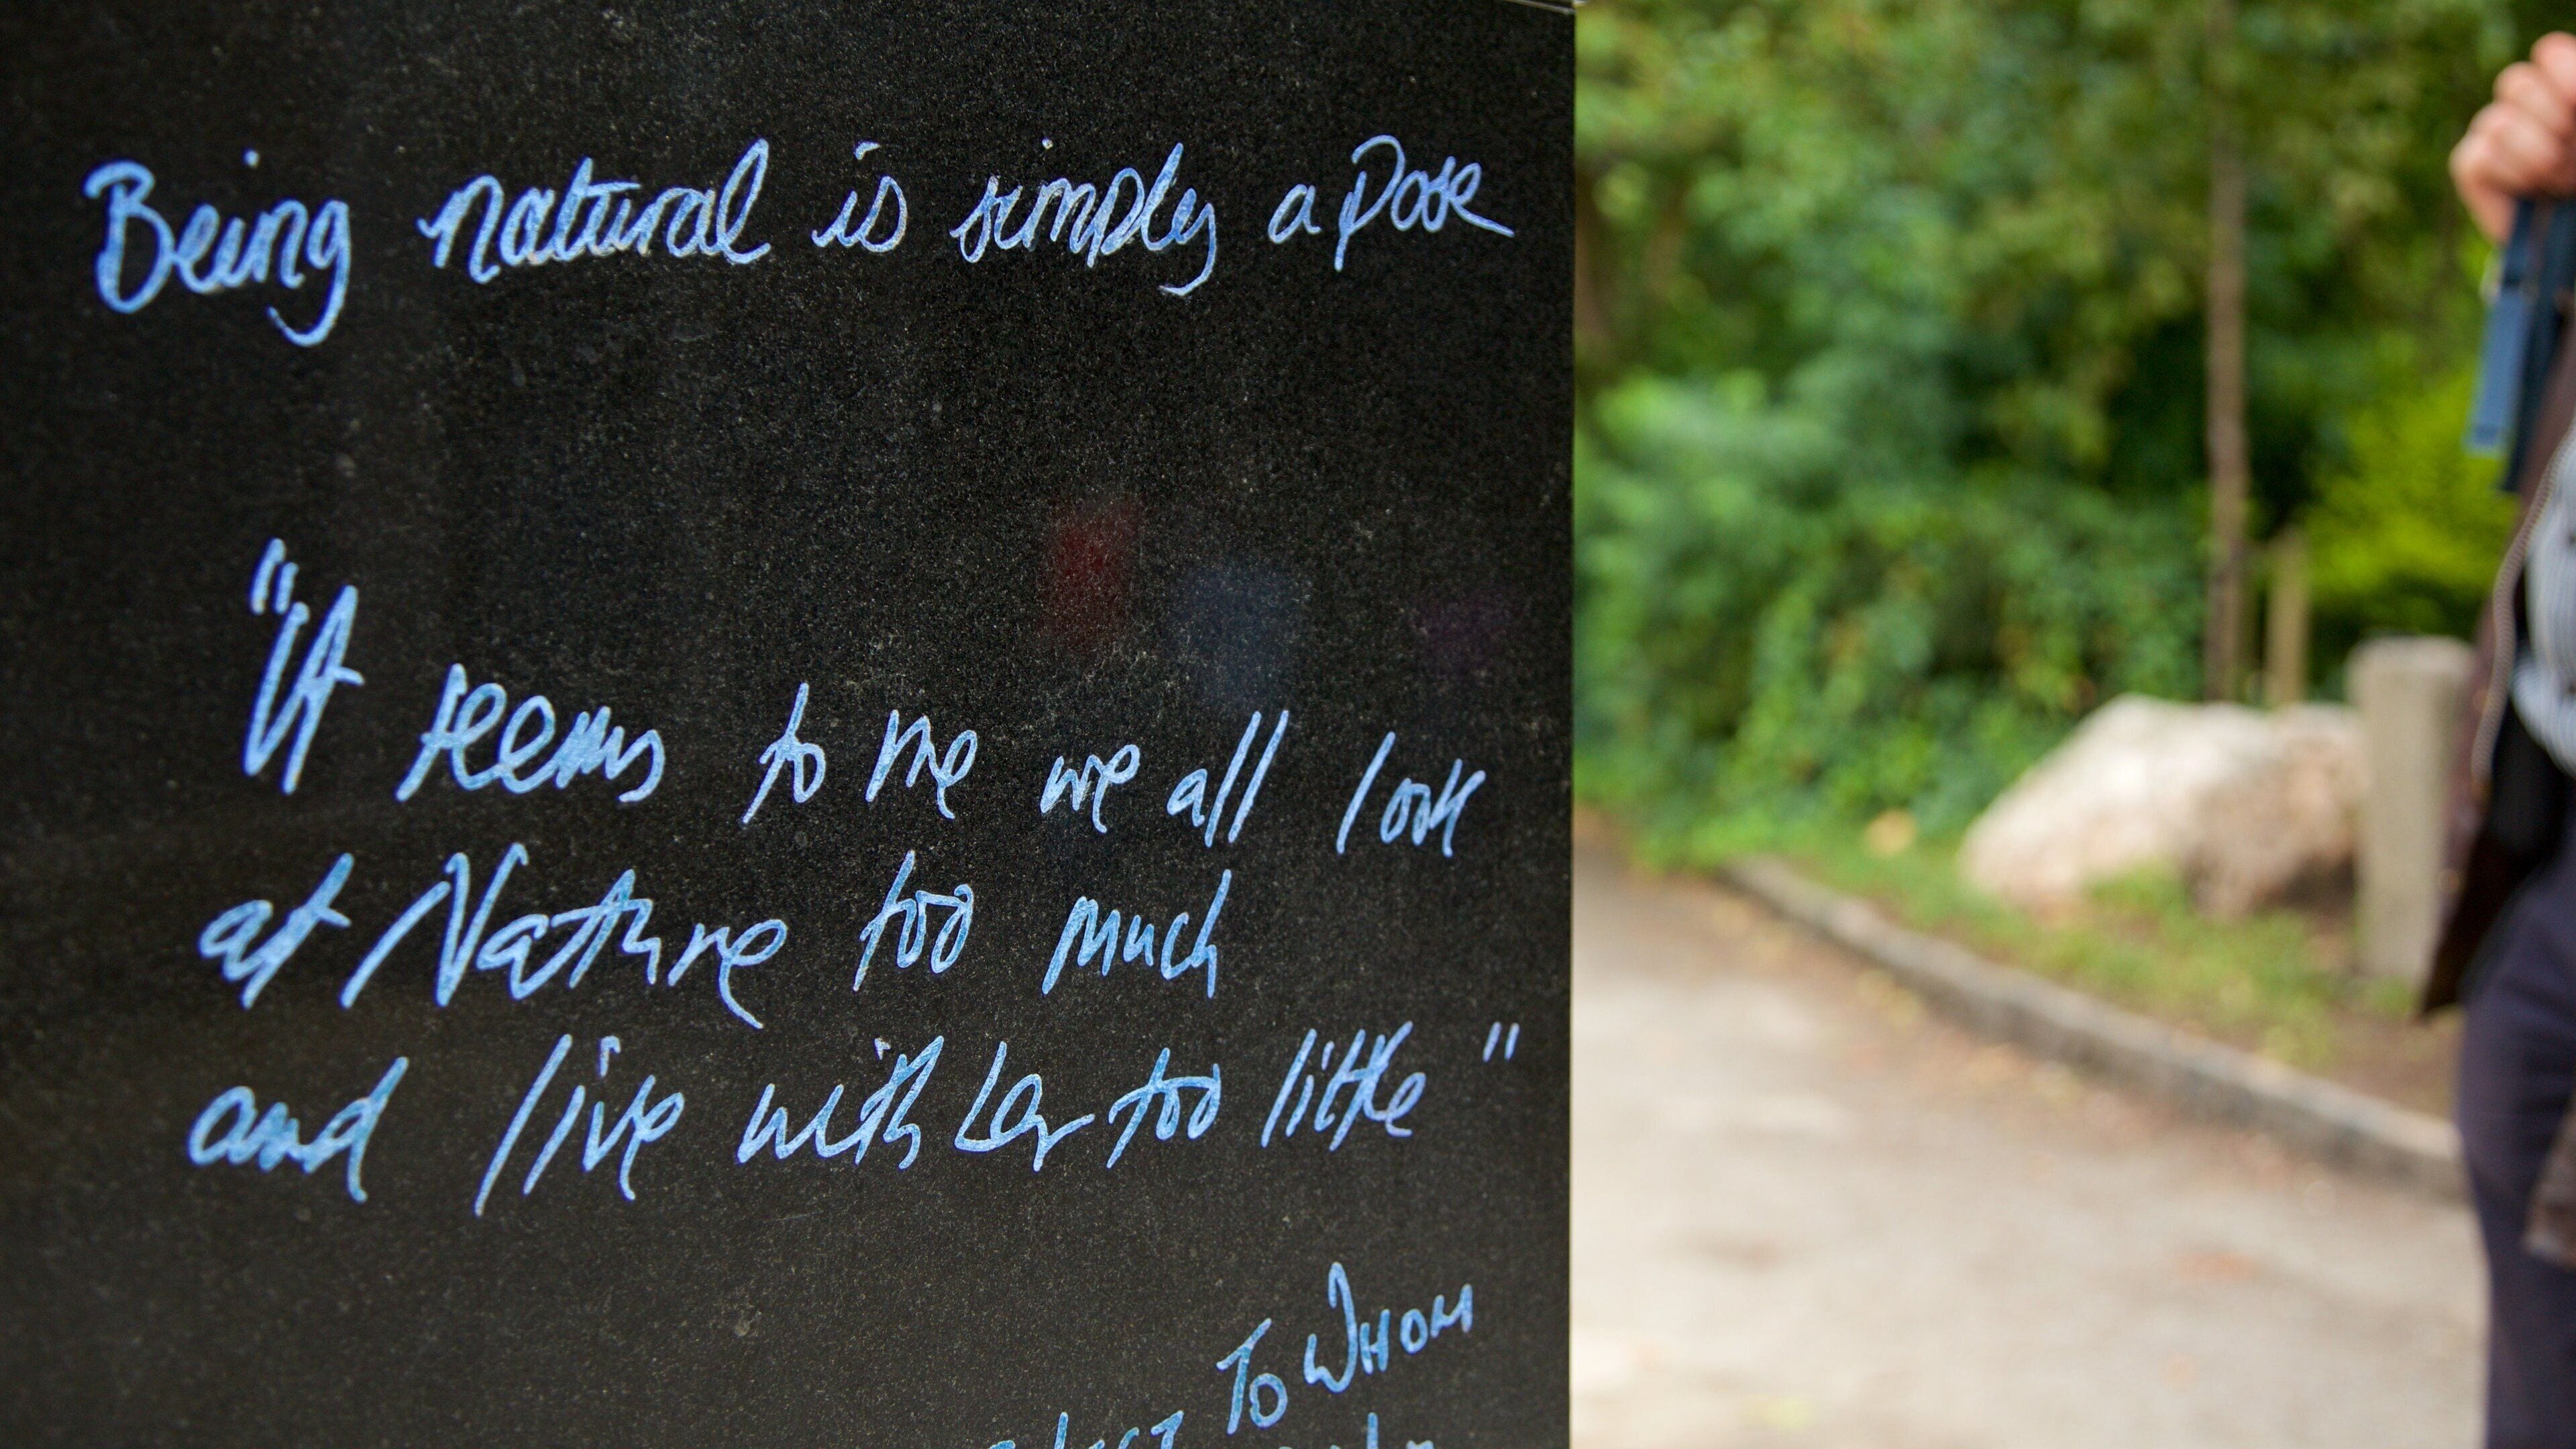 Being natural is simply a pose
"It seems to me we all look
at Nature too much
and live with her too little"
To WHOM